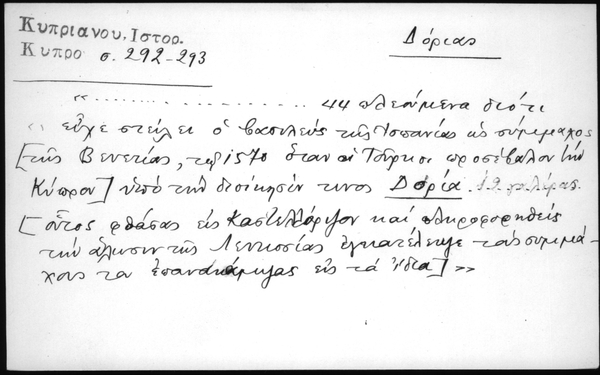 Κυπριανου, Ιστορ.
Κυπρο σ. 292-293
Δόριας
«.................... 44 πλεούμενα διότι
« εἶχε στείλει ὁ βασιλεύς τῆς Ἱσπανίας ὡς σύμμαχος
[τῆς Βενετίας, τῷ 1570 ὅταν οἱ Τοῦρκοι προσέβαλον τήν
Κύπρον] ὑπό τήν διοίκησίν τινος Δορία 12 γαλέρας.
[οὗτος φθάσας εἰς Καστελλόριζον καί πληροφορηθείς
τήν ἅλωσιν τῆς Λευκωσίας ἐγκατέλειψε τούς συμμά-
χους του ἐπανακάμψας εἰς τά ἴδια] »